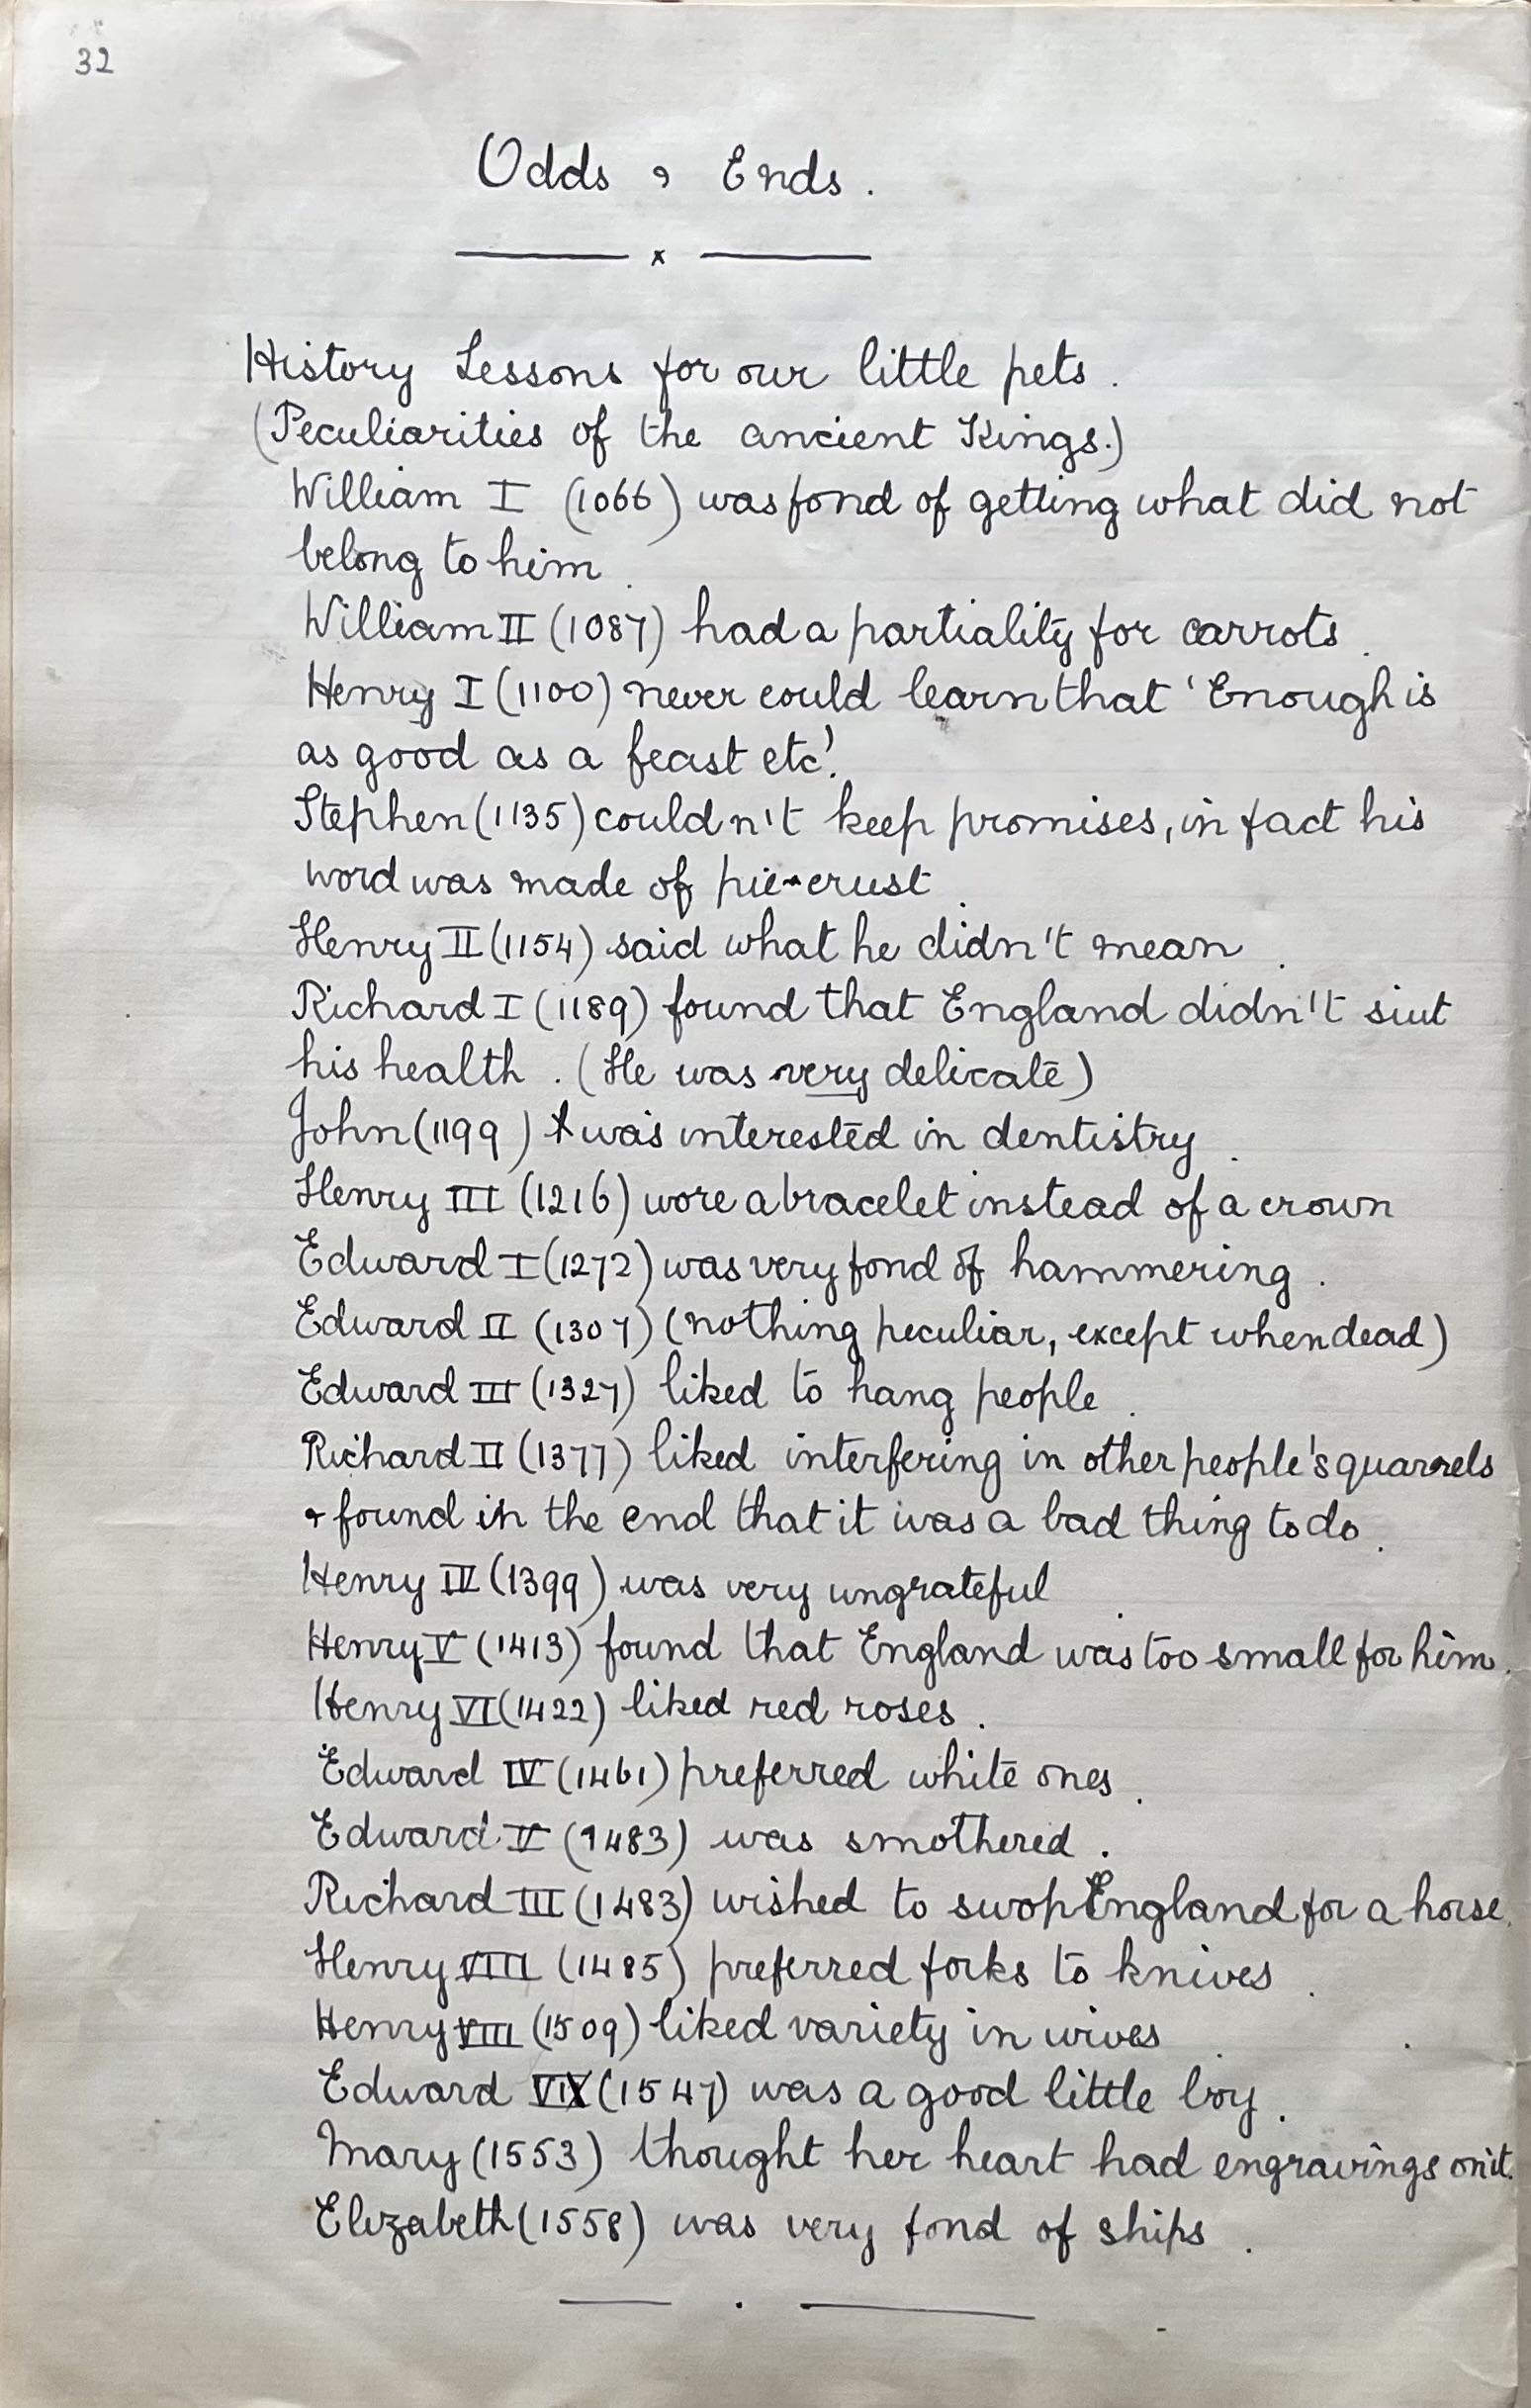 32
Odds & Ends.
x
History Lessons for our little pets.
(Peculiarities of the ancient Kings.)
William I (1066) was fond of getting what did not
belong to him.
William II (1087) had a partiality for carrots.
Henry I (1100) never could learn that 'Enough is
as good as a feast etc'.
Stephen (1135) couldn't keep promises, in fact his
word was made of pie-crust.
Henry II (1154) said what he didn't mean.
Richard I (1189) found that England didn't siut
his health. (He was very delicate)
John (1199) was interested in dentistry.
Henry III (1216) wore a bracelet instead of a crown
Edward I (1272) was very fond of hammering.
Edward II (1307) (nothing peculiar, except when dead)
Edward III (1327) liked to hang people.
Richard II (1377) liked interfering in other people's quarrels
& found in the end that it was a bad thing to do.
Henry IV (1399) was very ungrateful.
Henry V (1413) found that England was too small for him.
Henry VI (1422) liked red roses.
Edward IV (1461) preferred white ones.
Edward V (1483) was smothered.
Richard III (1483) wished to swop England for a horse.
Henry VIII (1485) preferred forks to knives.
Henry VIII (1509) liked variety in wives.
Edward VI (1547) was a good little boy.
Mary (1553) thought her heart had engravings on it.
Elizabeth (1558) was very fond of ships.